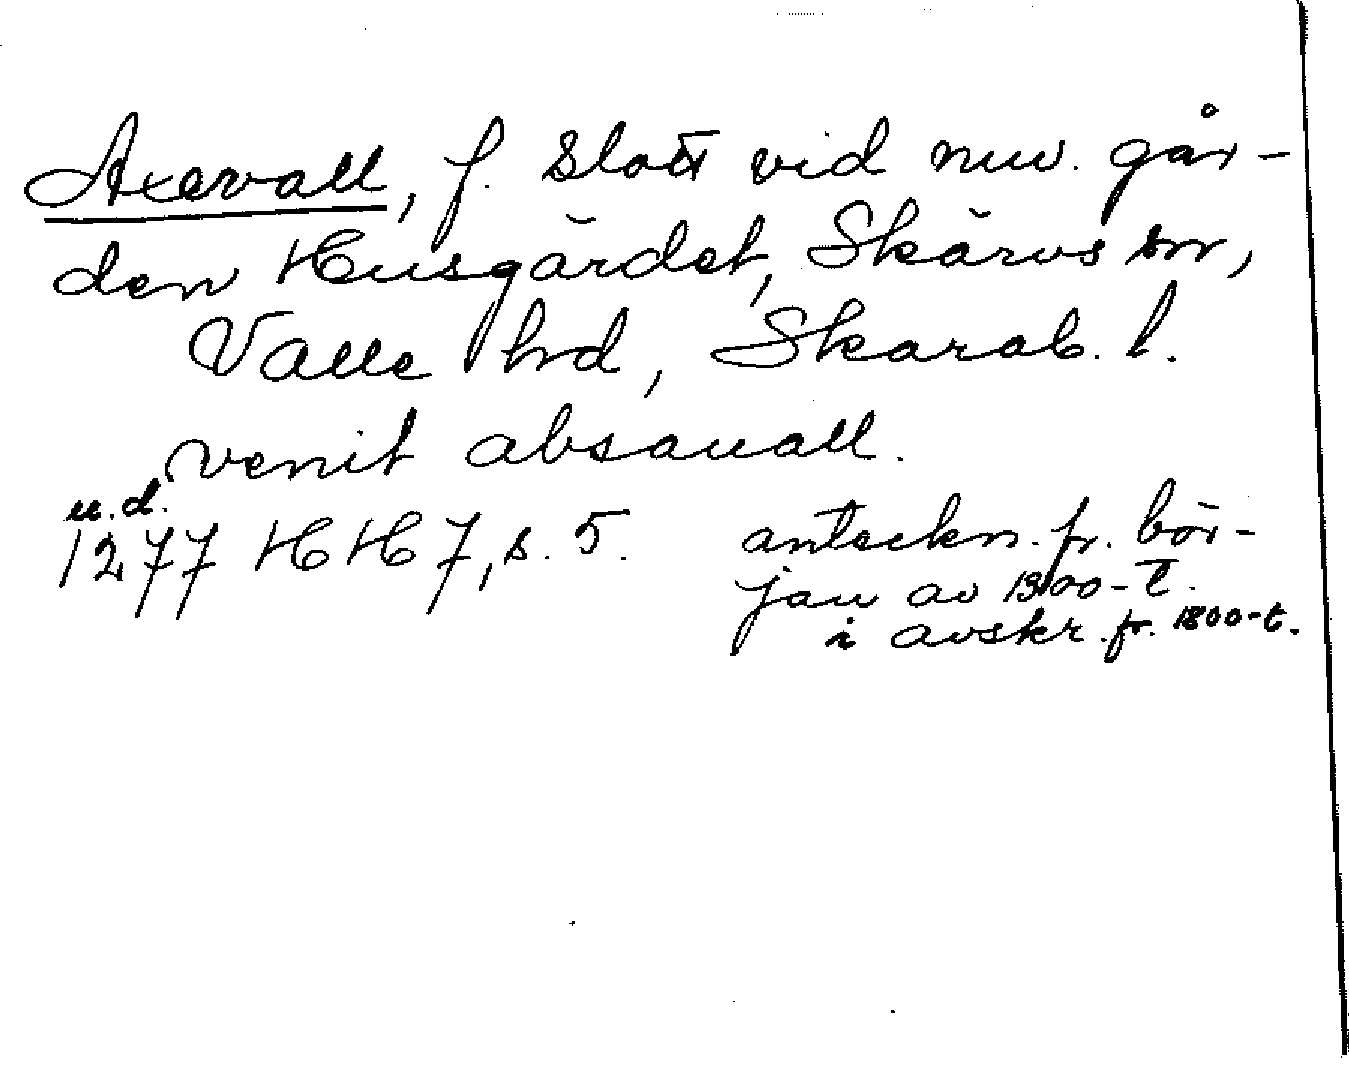 Axevall, f. slott vid nuv. går-
den Husgärdet, Skärvs sn,
Valle hd, Skarab. l.
venit absauall.
u.d.
1277 HH 7, s. 5.
anteckn. fr. bör-
jan av 1300-t.
i avskr. fr. 1800-t.